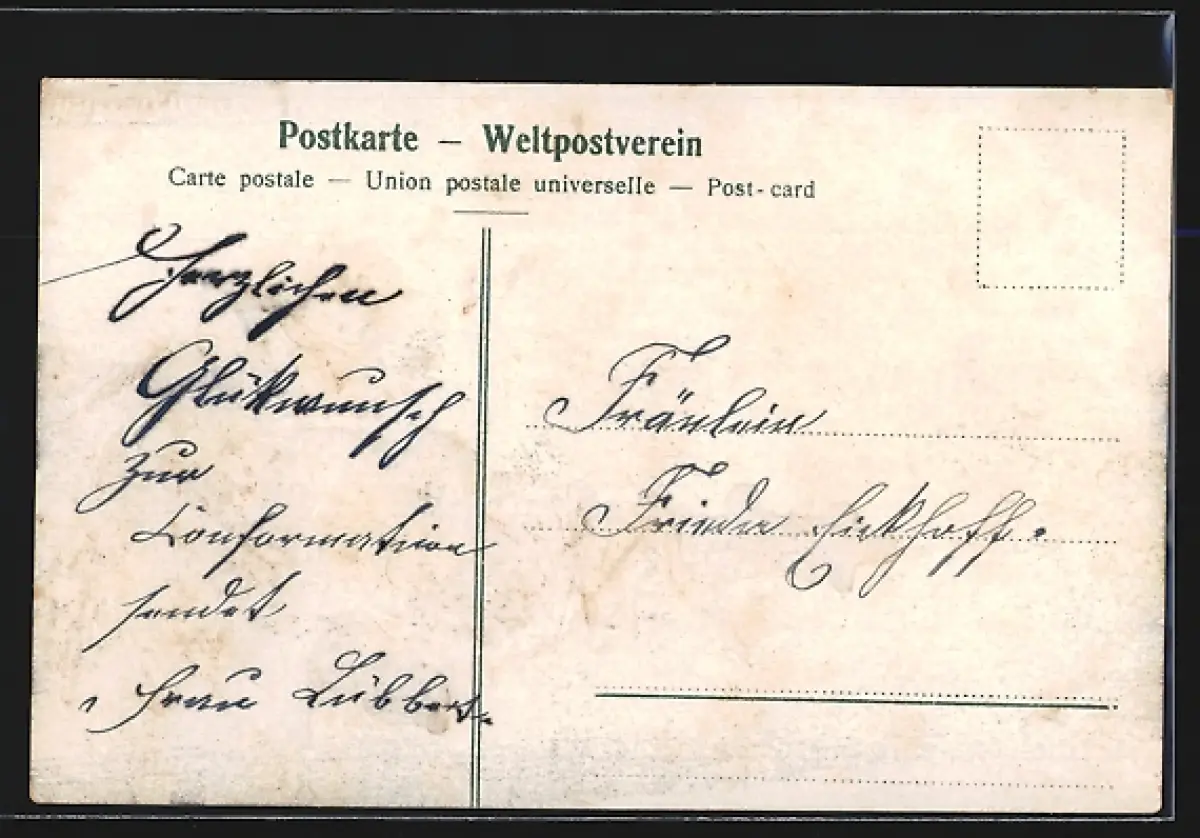 Postkarte – Weltpostverein
Carte postale — Union postale universelle — Post-card
Herzlichen
Glükwunsch
zur
Conformation
sendet
Frau Lübbers.
Fräulein
Frieda Eickhoff.